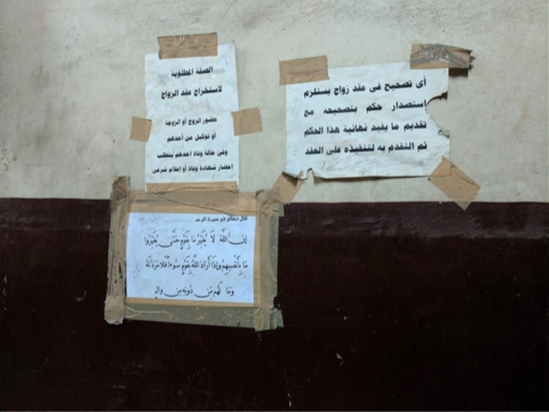 الصفة المطلوبة
لاستخراج عقد الزواج
حضور الزوج أو الزوجة
أو توكيل من أحدهم
وفى حالة وفاة احدهم يتطلب
إحضار شهادة وفاة أو إعلام شرعى
أى تصحيح فى عقد زواج يستلزم
إستصدار حكم بتصحيحه مع
تقديم ما يفيد نهائية هذا الحكم
ثم التقدم به لتنفيذه على العقد
قال تعالى فى سورة الرعد
إِنَّ اللَّهَ لَا يُغَيِّرُ مَا بِقَوْمٍ حَتَّى يُغَيِّرُوا
مَا بِأَنْفُسِهِمْ وَإِذَا أَرَادَ اللَّهُ بِقَوْمٍ سُوءًا فَلَا مَرَدَّ لَهُ
وَمَا لَهُمْ مِنْ دُونِهِ مِنْ وَالٍ